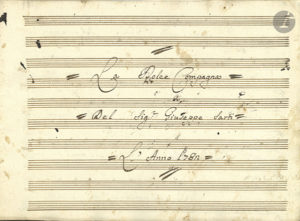 La Dolce Compagna
a
Del Sig.r Giuseppe Sarti
L'Anno 178